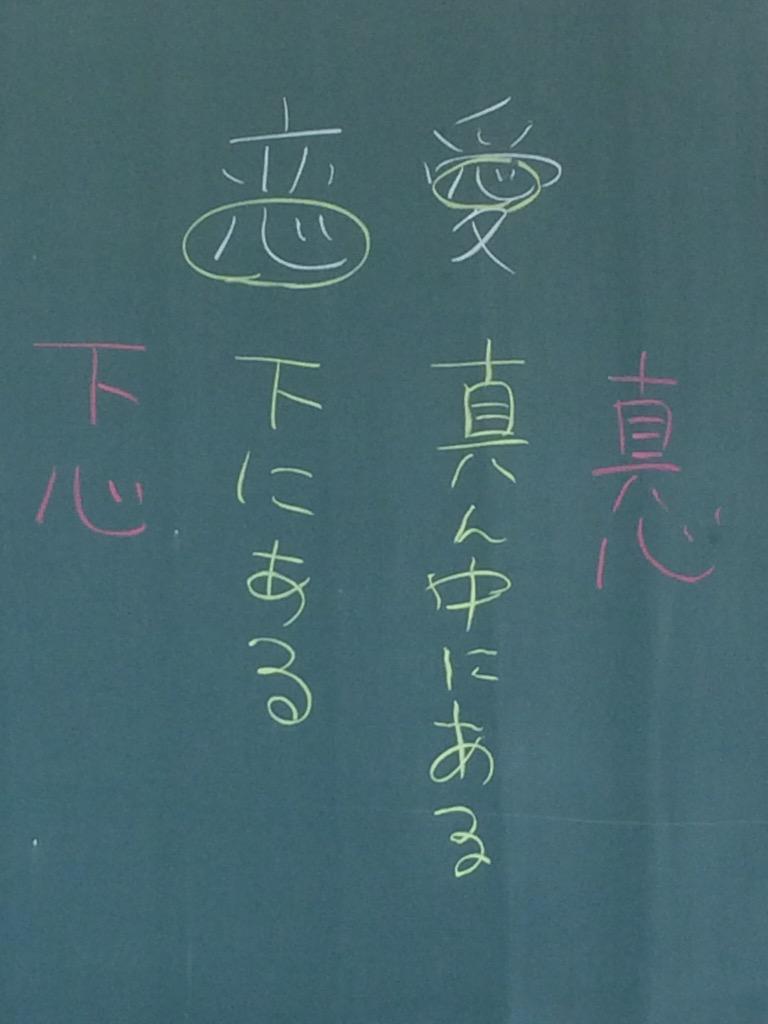 真心
愛
真ん中にある
恋
下にある
下心